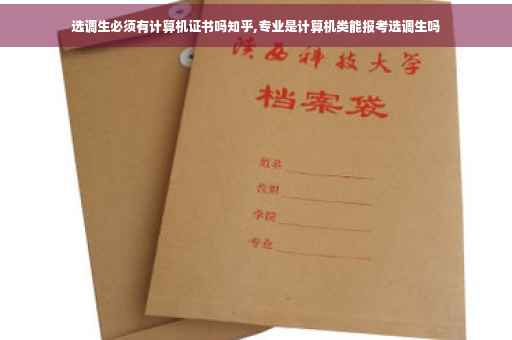 选调生必须有计算机证书吗知乎,专业是计算机类能报考选调生吗
陕西科技大学
档案袋
姓名
性别
学院
专业